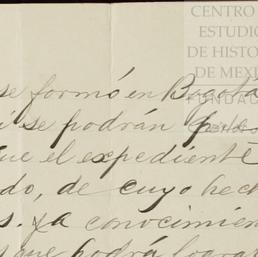 CENTRO
ESTUDIO
DE HISTOR
DE MEXI
FUNDAC
se formó en Bogotá
i se podrán
que el expediente
do, de cuyo hech
s. ya conocimien
s que podrá lograr